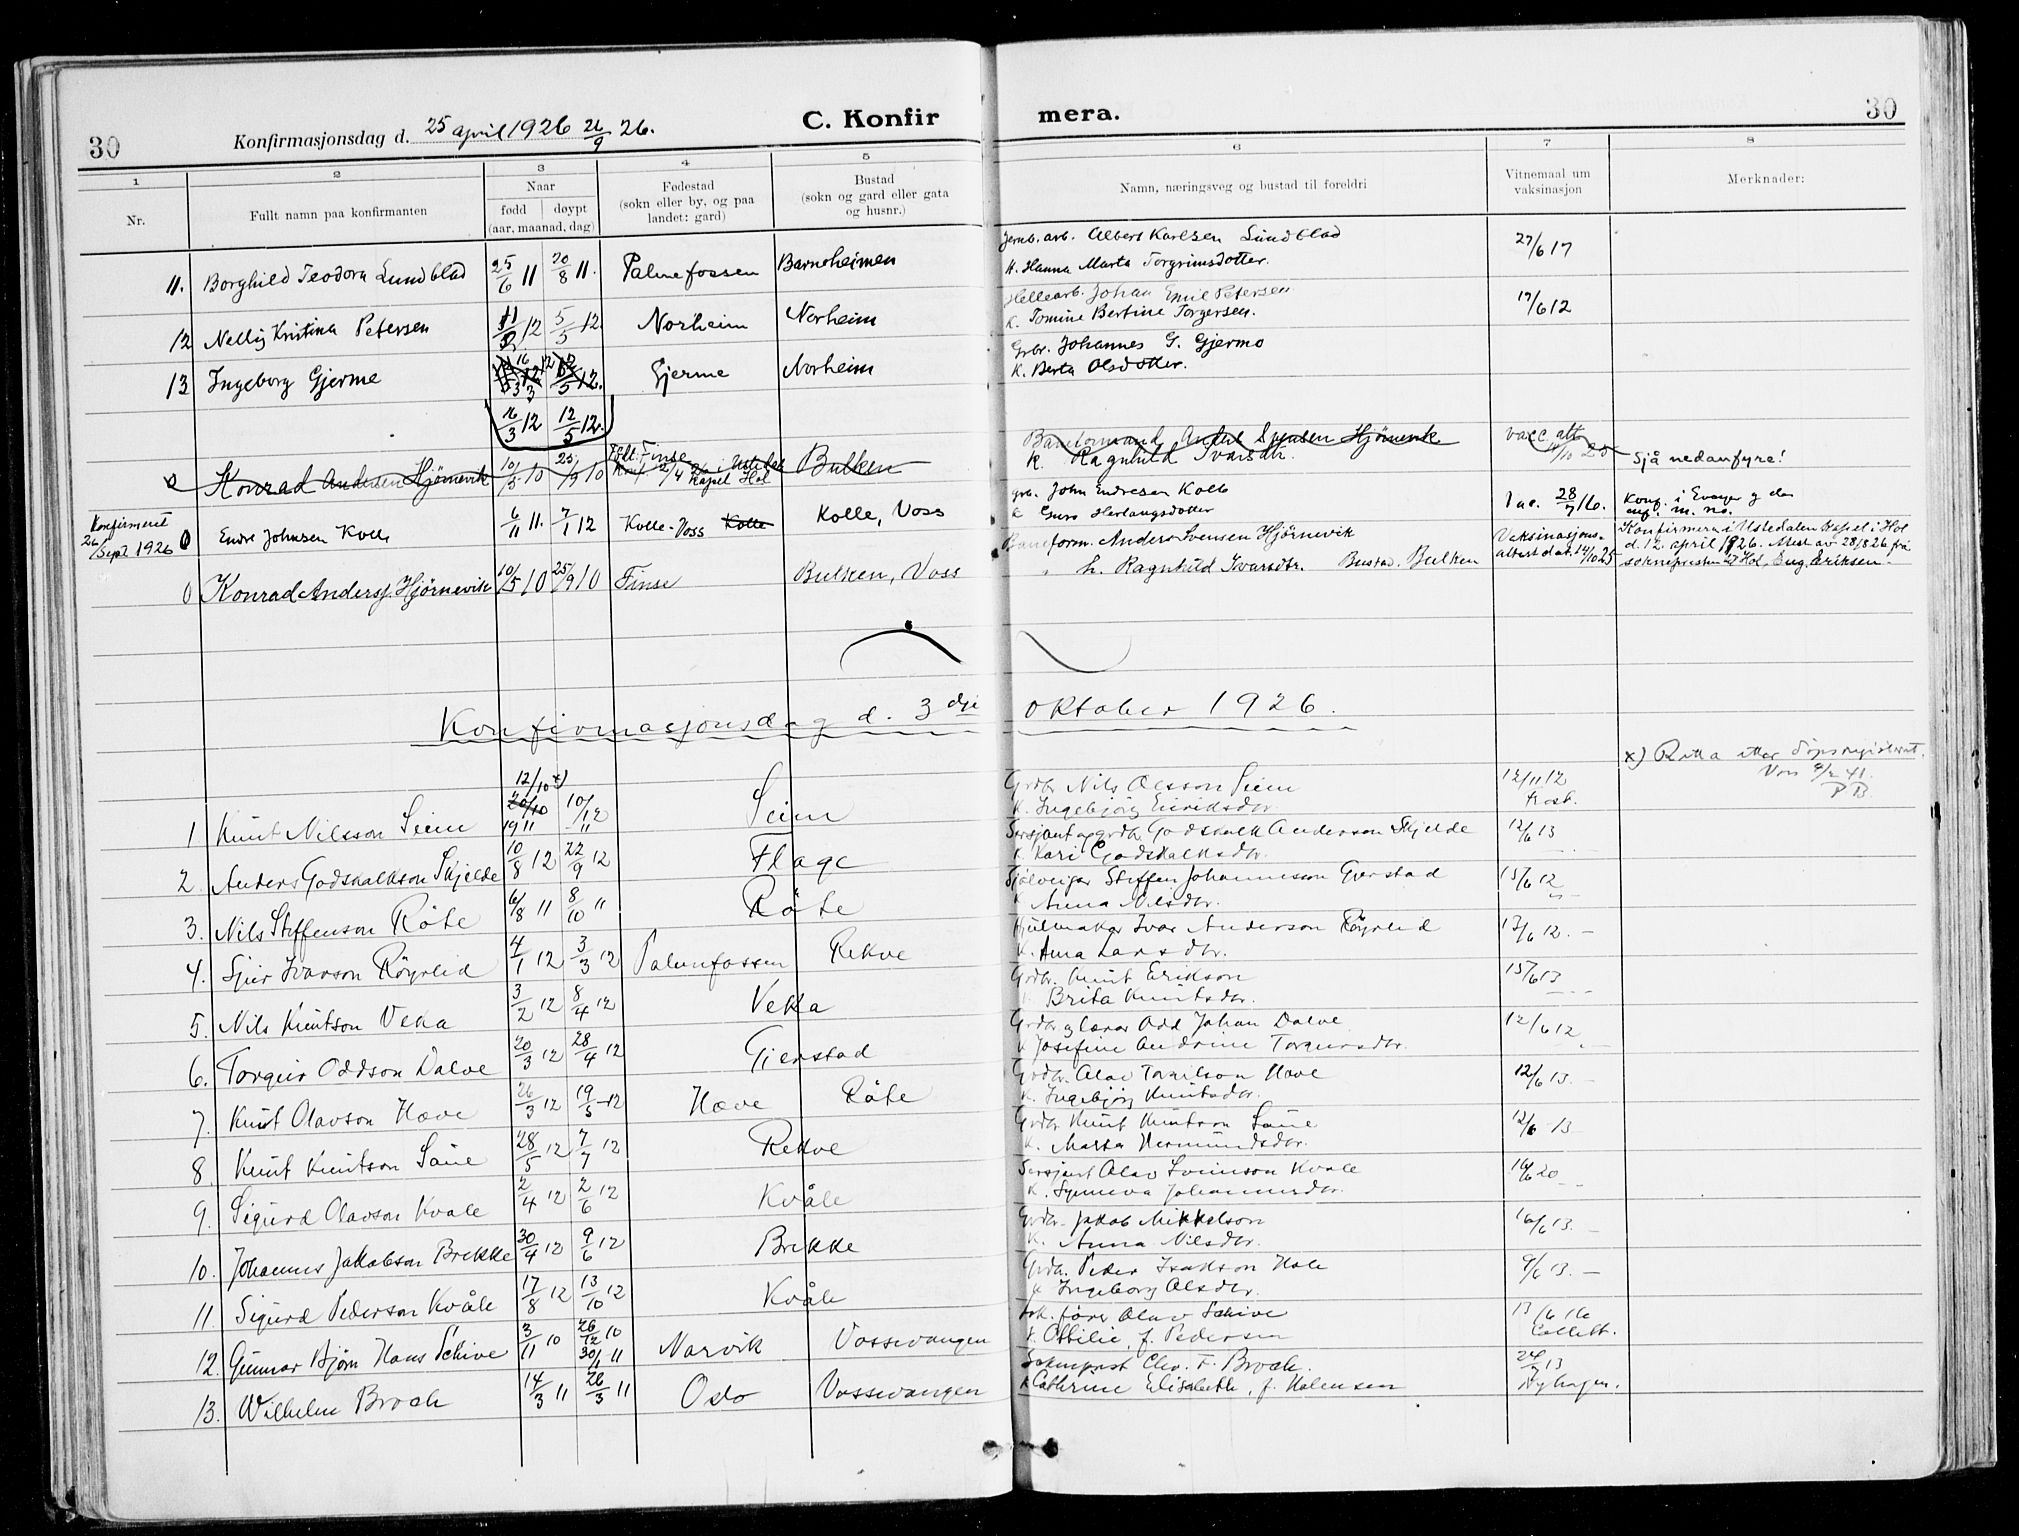 30
Konfirmasjonsdag d. 25 april 1926 26/9 26.
C. Konfir
mera.
30
1 2 3 4 5 6 7 8
Nr.
Fullt namn paa konfirmanten
Naar
fødd døypt
(aar, maanad, dag)
Fødestad
(sokn eller by, og paa
landet: gard)
Bustad
(sokn og gard eller gata
og husnr.)
Namn, næringsveg og bustad til foreldri
Vitnemaal um
vaksinasjon
Merknader:
11. Borghild Teodora Lundblad 25/6 11 20/8 11. Palmefossen Barneheimen Jernb. arb. Albert Karlsen Lundblad 27/6 17
K. Hanna Marta Torgrimsdotter.
12 Nelly Kristina Petersen 12 5/5 12. Norheim Norheim Hellearb. Johan Emil Petersen 19/6 12
K. Tomine Bertine Torgersen.
13 Ingeborg Gjerme Gjerme Norheim Grbr. Johannes G. Gjerme
K. Berta Olsdotter.
16/3 12 12/5 12.
0 Konrad Andersen Hjørnevik 10/5 10 25/9 10 Født: Finse Bulken Sjå nedanfyre!
K. Ragnhild Ivarsdtr.
Konfirmert
26/Sept 1926 0 Endre Johnsen Kolle 6/11 11. 7/1 12 Kolle-Voss Kolle Kolle, Voss grb. John Endresen Kolle Vac. 28/7 16.
K Guro Herlaugsdotter
0 Konrad Andersf. Hjørnevik 10/5 10 25/9 10 Finse Bulken, Voss Baneform. Anders Svensen Hjørnevik Vaksinasjons-
attest dat. 14/10 25
h. Ragnhild Ivarsdtr. Bustad. Bulken
Konfirmera i Ustedalen kapel i Hol
d. 12. april 1926. Meld. av 28/8 26 frå
soknepresten i Hol, Eug. Eriksen.
Konfirmasjonsdag d. 3dje oktober 1926.
x) Retta etter dåpsregisteret.
Voss 4/2 41.
P B.
12/10 x)
1 Knut Nilsson Seim 20/10 1911 10/12 " Seim Grdbr Nils Olsson Seim 12/11 12
K. Ingebjørg Eiriksdtr.
2. Anders Godskalkson Skjelde 10/8 12 22/9 12 Flage Sersjant og grdbr. Godskalk Anderson Skjelde 12/6 13
K. Kari Godskalksdtr.
3. Nils Steffenson Röte 6/8 11 8/10 " Röte Sjølveigar Steffen Johannesson Gjerstad 15/6 12
K Anna Nilsdtr.
4. Sjur Ivarson Röyrlid 4/1 12 3/3 12 Palmafossen Rekve Hjulmakar Ivar Anderson Röyrlid 13/6 12. -
K. Anna Larsdtr.
5. Nils Knutson Veka 3/2 12 8/4 12 Veka Grdbr. Knut Erikson 15/6 13
K. Brita Knutsdtr.
6. Torgeir Oddson Dalve 20/3 12 28/4 12 Gjerstad Grdbr og lærar Odd Johan Dalve 12/6 12
K Josefine Andrine Torgeirsdtr.
7. Knut Olavson Hæve 26/3 12 19/5 12 Hæve Röte Grdbr. Olav Hæve 12/6 13.
K. Ingebjørg Knutsdtr.
8. Knut Knutson Saue 28/5 12 7/7 12 Rekve Grdbr Knut Knutson Saue 12/6 13
K. Marta Hermundsdtr.
9. Sigurd Olavson Kvåle 2/4 12 2/6 12 Kvåle Sersjant Olav Sveinson Kvåle 16/6 20
K. Synneva Johannesdtr.
10. Johannes Jakobson Brekke 30/4 12 9/6 12 Brekke Grdbr. Jakob Mikkelson 16/6 13. -
K. Anna Nilsdtr.
11. Sigurd Pederson Kvåle 17/8 12 13/10 12 Kvåle Grdbr. Peder Isakson Hole 9/6 13. -
K Ingeborg Olsdtr.
12. Gunnar Bjørn Hans Schive 3/11 10 26/12 10 30/1 11 Narvik Vossevangen Lok. förer Olav Schive 13/6 16
K. Ottilie, f. Pedersen Collett.
13. Wilhelm Broch 14/3 11 26/3 11 Oslo Vossevangen Soknprest Chr. F. Broch. 24/7 13
K Cathrine Elisabeth, f. Halvorsen Nyhagen.